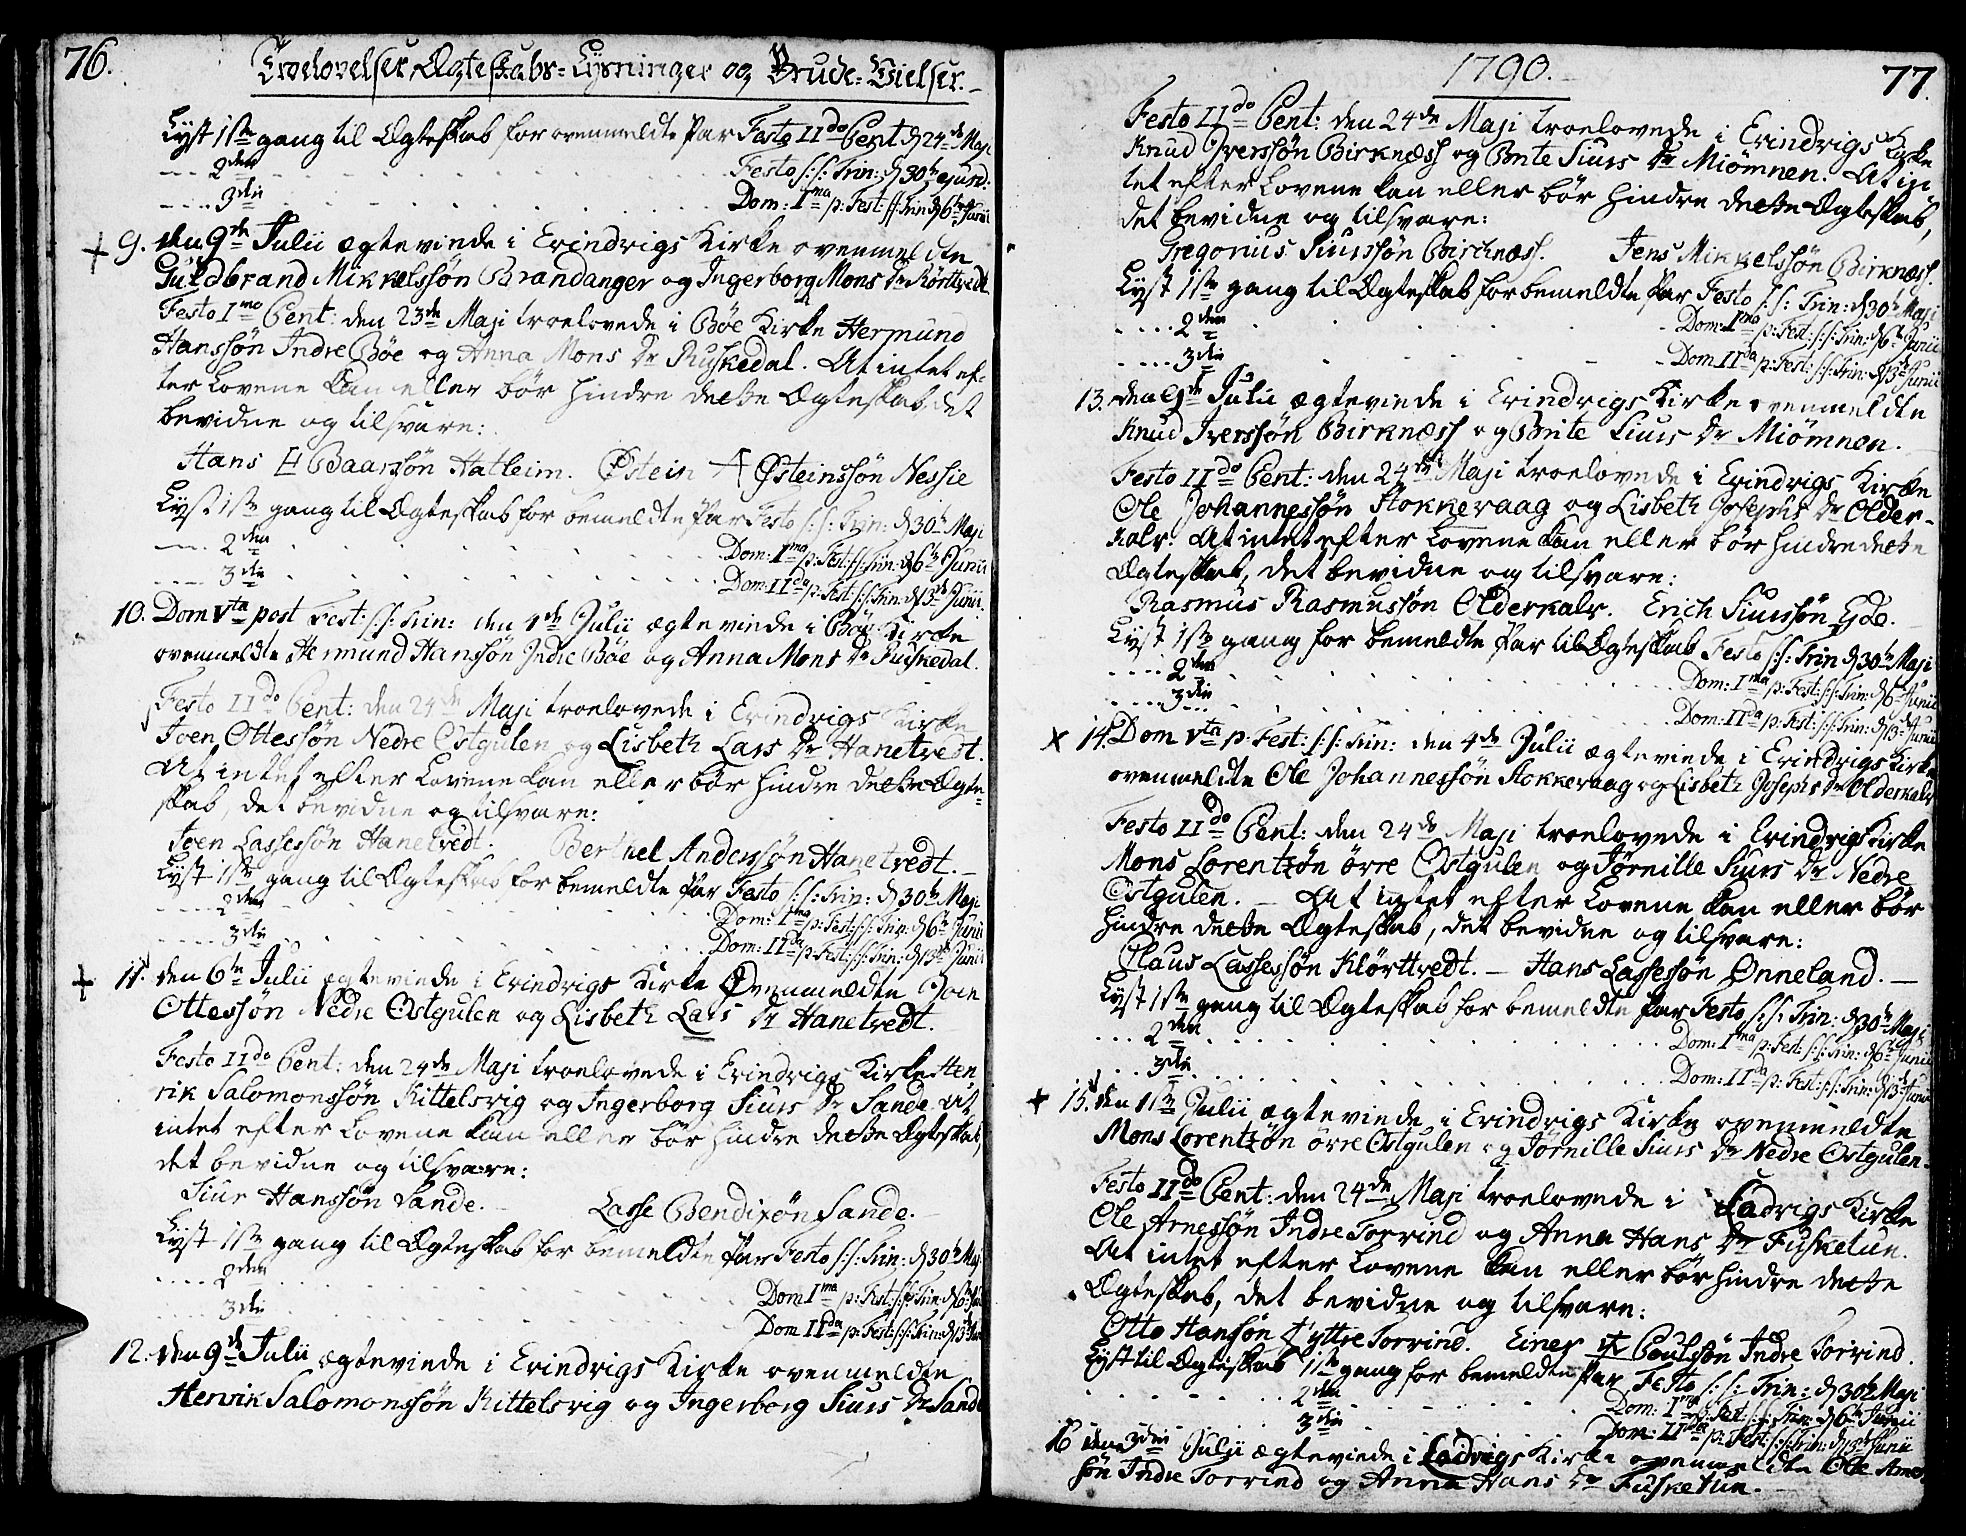 76.
Troelovelser, Ægteskabs-Lysninger og Brude-Vielser.
Lyst 1ste gang til Ægteskab for ovenmeldte Par Festo IIdo Pent. d 24de Maji
2den Festo s: s: Trin: d 30te ejusd:
3die Dom: Ima p: Fest: s: s: Trin d 6te Junii
9. den 9de Julii ægteviede i Erindrigs Kirke ovenmeldte
Guldbrand Mikkelssøn Brandanger og Ingerborg Mons Dr Rørttvedt
Festo Imo Pent: den 23de Maji troelovede i Bøe Kirke Hermund
Hanssøn Indre Bøe og Anna Mons Dr Ruskedal. At intet ef-
ter Lovene kan eller bør hindre dette Ægteskab, det
bevidne og tilsvare:
Hans H Baarssøn Hatleim. Østein Østeinssøn Nessie
Lyst 1ste gang til Ægteskab for bemeldte Par Festo s: s: Trin: d 30te Maji
2den Dom: Ima p: Fest: s: s: Trin: d 6te Junii
3die Dom: IIda p: Fest: s: s: Trin: d 13de Junii.
10. Dom Vta post Fest: s: s: Trin: den 4de Julii ægteviede i Bøe Kirke
ovenmeldte Hermund Hanssøn Indre Bøe og Anna Mons Dr Ruskedal.
Festo IIdo Pent: den 24de Maji troelovede i Erindrigs Kirke
Joen Ottessøn Nedre Ostgulen og Lisbeth Lars Dr Hanetvedt.
At intet efter Lovene kan eller bør hindre dette Ægte-
skab, det bevidne og tilsvare:
Joen Lassessøn Hanetvedt. Berthel Anderssøn Hanetvedt.
Lyst 1ste gang til Ægteskab for bemeldte Par Festo s: s: Trin: d 30te Maji
2den Dom: Ima p: Fest: s: s: Trin: d 6te Junii
3die Dom: IIda p: Fest: s: s: Trin: d 13de Junii
11. den 6te Julii ægteviede i Erindrigs Kirke Ovenmeldte Joen
Ottessøn Nedre Ostgulen og Lisbeth Lars Dr Hanetvedt.
Festo IIdo Pent: den 24de Maji troelovede i Erindrigs Kirke Hen
rik Salomonssøn Kittelsvig og Ingerborg Siurs Dr Sande. At
intet efter Lovene kan eller bør hindre dette Ægteskab,
det bevidne og tilsvare:
Siur Hanssøn Sande. Lasse Bendixøn Sande.
Lyst 1ste gang til Ægteskab for bemeldte Par Festo s: s: Trin: d 30te Maj
2den Dom Ima p: Fest: s: s: Trin: d 6te Jun
3die Dom IIda p: Fest: s: s: Trin: d 13de Jun
12. den 9de Julii ægteviede i Erindrigs Kirke ovenmeldte
Henrik Salomonssøn Kittelsvig og Ingerborg Siurs Dr Sande
1790.
77.
Festo IIdo Pent: den 24de Maji troelovede i Erindrigs Kirke
Knud Iverssøn Birknæss og Brite Siurs Dr Miømnen. At in-
tet efter Lovene kan eller bør hindre dette Ægteskab,
det bevidne og tilsvare:
Gregorius Siurssøn Birchnæss. Jens Mikkelssøn Birknæss.
Lyst 1ste gang til Ægteskab for bemeldte Par Festo s: s: Trin: d 30te Maji
2den Dom: Ima p: Fest: s: s: Trin: d 6te Junii
3die Dom IIda p: Fest: s: s: Trin: d 13de Junii
13. den Julii ægteviede i Erindrigs Kirke ovenmeldte
Knud Iverssøn Birknæss og Brite Siurs Dr Miømnen.
Festo IIdo Pent: den 24de Maji troelovede i Erindrigs Kirke
Ole Johannessøn Stokkeraag og Lisbeth Josephs Dr Older-
kalv. At intet efter Lovene kan eller bør hindre dette
Ægteskab, det bevidne og tilsvare:
Rasmus Rasmussøn Olderkalv. Erich Siurssøn Eде.
Lyst 1ste gang for bemeldte Par til Ægteskab Festo s: s: Trin d 30te Maji
2den Dom: Ima p: Fest: s: s: Trin: d 6te Junii
3die Dom: IIda p: Fest: s: s: Trin: d 13de Junii
14. Dom Vta p: Fest: s: s: Trin: den 4de Julii ægteviede i Erindrigs Kirke
ovenmeldte Ole Johannessøn Stokkeraag og Lisbeth Josephs Dr Olderkalv
Festo IIdo Pent: den 24de Maji troelovede i Erindrigs Kirke
Mons Lorentzøn örre Ostgulen og Jørnille Siurs Dr Nedre
Ostgulen. - At intet efter Lovene kan eller bør
hindre dette Ægteskab, det bevidne og tilsvare:
Claus Lassessøn Klørttvedt. - Hans Lassessøn Ønneland. -
Lyst 1ste gang til Ægteskab for bemeldte Par Festo s: s: Trin: d 30te Maji
2den Dom: Ima p: Fest: s: s: Trin: d 6te Junii
3die Dom: IIda p: Fest: s: s: Trin: d 13de Junii
15. den 11te Julii ægteviede i Erindrigs Kirke ovenmeldte
Mons Lorentzøn örre Ostgulen og Jørnille Siurs Dr Nedre Ostgulen.
Festo IIdo Pent: den 24de Maji troelovede i Ladrigs Kirke
Ole Arnessøn Indre Torvind og Anna Hans Dr Fusketun.
At intet efter Lovene kan eller bør hindre dette
Ægteskab, det bevidne og tilsvare:
Otto Hansøn Yttre Torvind. Einer Poulssøn Indre Torvind.
Lyst til Ægteskab 1ste gang for bemeldte Par Festo s: s: Trin: d 30te Maji
2den Dom: Ima p: Fest: s: s: Trin: d 6te Junii
3die Dom: IIda p: Fest: s: s: Trin: d 13de Junii
16 den 3die Julii ægteviede i Ladrigs Kirke ovenmeldte Ole Arnes
søn Indre Torvind og Anna Hans Dr Fusketun.